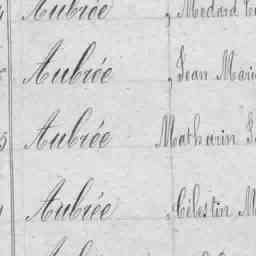 Aubrée Médard
Aubrée Jean Marie
Aubrée Mathurin
Aubrée Célestin M